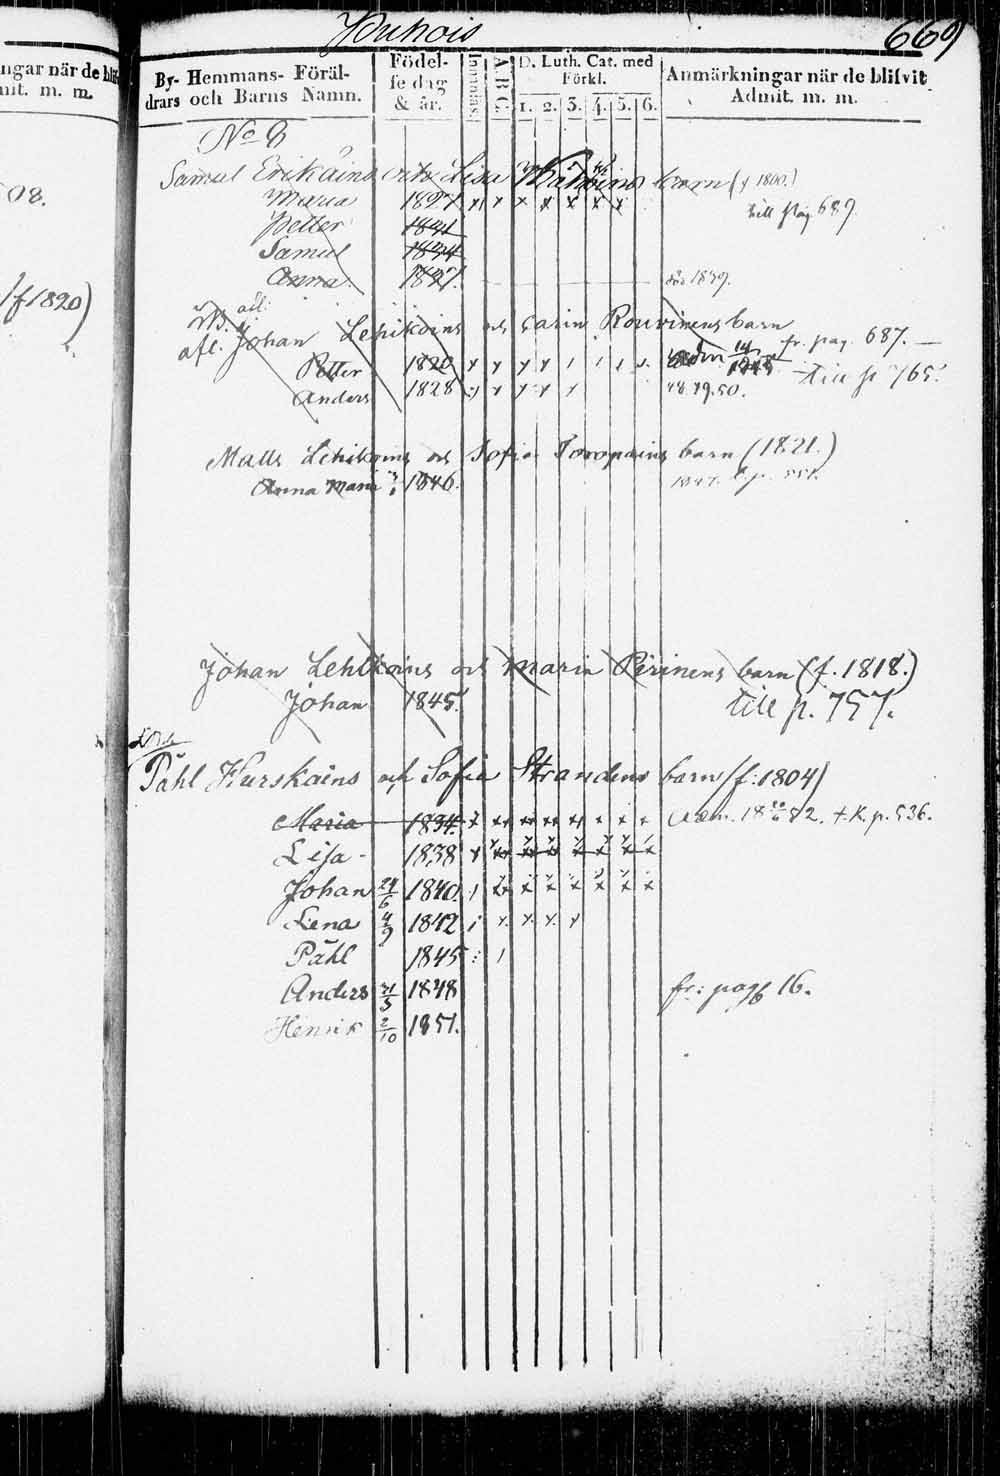 669
ngar när de
nit. m. m.
By- Hemmans- Föräl-
drars och Barns Namn.
Födel-
se dag
& år.
Innanläs.
A.B.C.
D. Luth. Cat. med
Förkl.
1. 2. 3. 4. 5. 6.
Anmärkningar när de blifvit
Admit. m. m.
No 8
Samul Erikäins och Lisa barn
Maria 1827. x x x x x x x till pag. 687.
Petter 1831
Samul 1834
Anna 1827. 1839.
(f 1820)
afl.
afl. Johan Lehikoins och Carin Rouvinens barn fr. pag. 687.
Petter 1820 till p 765.
Anders 1828 48.49.50.
Matts Lehikoins och Sofia barn (1821.)
Anna Maria 1846.
Johan Lehikoins och Maria Pirinens barn (f. 1818.)
Johan 1845. till p. 757.
Påhl Hurskains och Sofia Strandens barn (f: 1804)
Maria 1834. x x x x x x x x K. p. 536.
Lisa - 1838
Johan 24/6 1840.
Lena 4/9 1842
Påhl 1845
Anders 31/3 1848 fr: pag 16.
Henrik 2/10 1851.